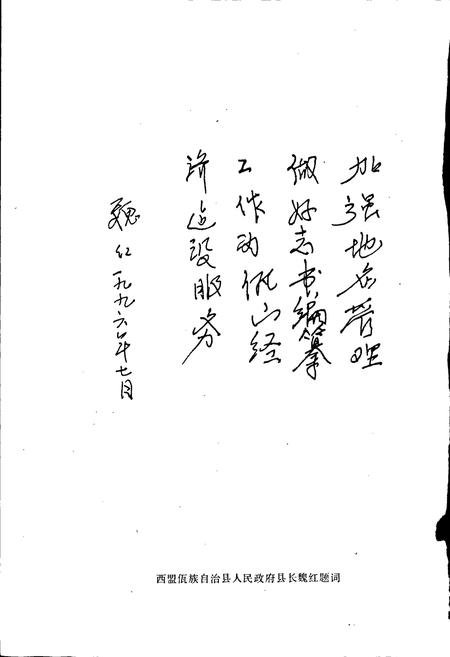 加强地名管理
做好志书编纂
工作为佤山经
济建设服务
魏红一九九六年七月
西盟佤族自治县人民政府县长魏红题词